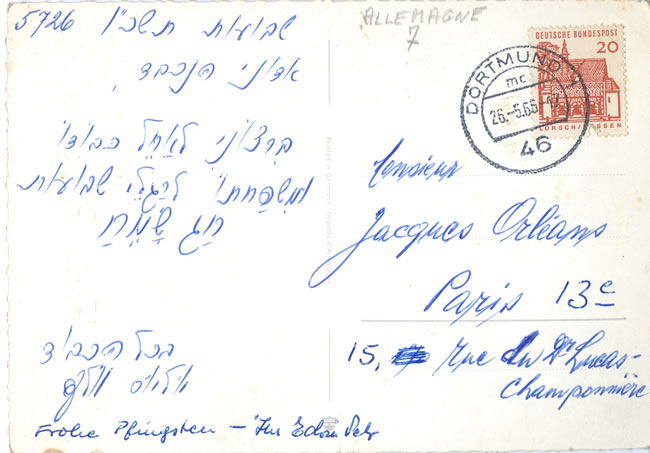 5726 שבועות תשכ"ו
אדוני הנכבד,
ברצוני לאַחֵל כבודו
ומשפחתו לרגלי שבועות
חַג שָׂמֵחַ
בכל הכבוד
Frohe Pfingsten – Ihr
ALLEMAGNE
7
DEUTSCHE BUNDESPOST
20
LORSCH/HESSEN
DORTMUND 1
mc
26.-5.66-17
46
Monsieur
Jacques Orléans
Paris 13e
15, Rue du Dr Lucas-
Championnière